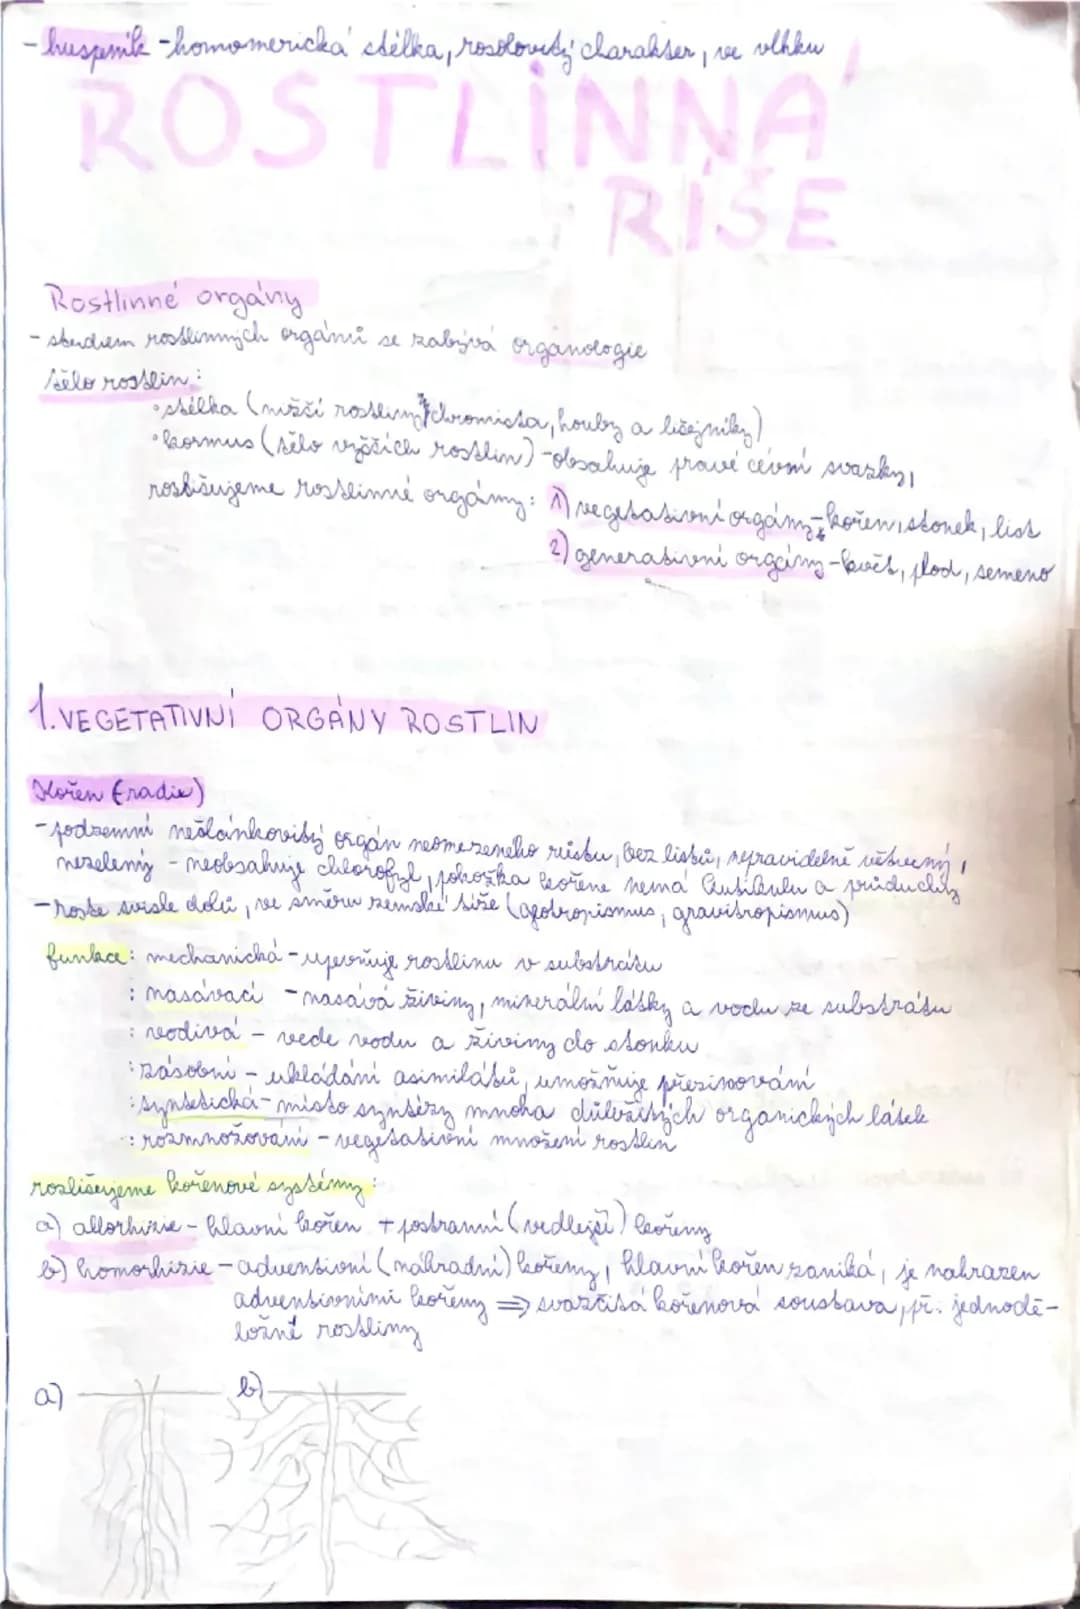 - huspeník - homomerická stélka, rosolovitý charakter, ve vlhku
ROSTLINNÁ
ŘÍŠE
Rostlinné orgány
- studiem rostlinných orgánů se zabývá organologie
tělo rostlin:
• stélka (nižší rostliny, chromista, houby a lišejníky)
• kormus (tělo vyšších rostlin) - obsahuje pravé cévní svazky,
rozlišujeme rostlinné orgány: 1) vegetativní orgány - kořen, stonek, list
2) generativní orgány - květ, plod, semeno
1. VEGETATIVNÍ ORGÁNY ROSTLIN
Kořen (radix)
- podzemní nečlánkovitý orgán neomezeného růstu, bez listů, nepravidelně větvený,
nezelený - neobsahuje chlorofyl, pokožka kořene nemá kutikulu a průduchy
- roste svisle dolů, ve směru zemské tíže (geotropismus, gravitropismus)
funkce: mechanická - upevňuje rostlinu v substrátu
: nasávací - nasává živiny, minerální látky a vodu ze substrátu
: vodivá - vede vodu a živiny do stonku
: zásobní - ukládání asimilátů, umožňuje přezimování
: syntetická - místo syntézy mnoha důležitých organických látek
: rozmnožování - vegetativní množení rostlin
rozlišujeme kořenové systémy:
a) allorhizie - hlavní kořen + postranní (vedlejší) kořeny
b) homorhizie - adventivní (náhradní) kořeny, hlavní kořen zaniká, je nahrazen
adventivními kořeny ⇒ svazčitá kořenová soustava, př. jednodě-
ložné rostliny
a) b)